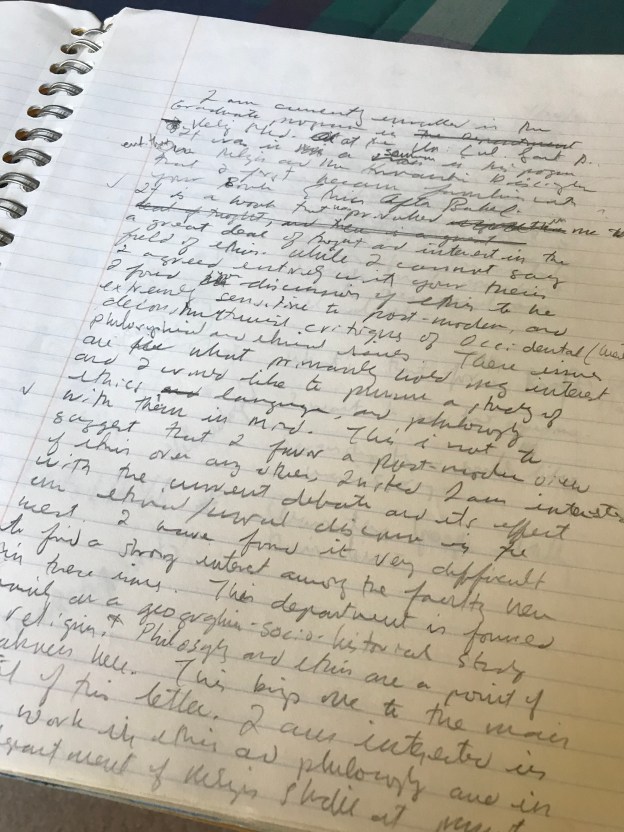 I am currently enrolled in the
Graduate program in
at the Un. Cal. Sant B.
It was in a seminar in his program
on Religion and the Discipline
that I first became familiar with
your Book Ethics After Babel.
It is a work that has provoked me to
a great deal of thought and interest in the
field of ethics. While I cannot say
I agreed entirely with your thesis
I found discussion of ethics to be
extremely sensitive to post-modern, and
deconstructionist critiques of Occidental/
philosophical and ethical issues. These issues
are what primarily hold my interest
and I would like to pursue a study of
ethics language, and philosophy
with them in mind. This is not to
suggest that I favor a post-modern view
of ethics over any other, Instead I am interested
with the current debate and its effect
on ethical/moral discourse in the
west. I have found it very difficult
to find a strong interest among the faculty here
in these issues. This department is focused
on a geographic-socio-historical study
religion. & Philosophy and ethics are a point of
here. This brings me to the main
of this letter. I am interested in
work in ethics and philosophy and in
department of religious studies at